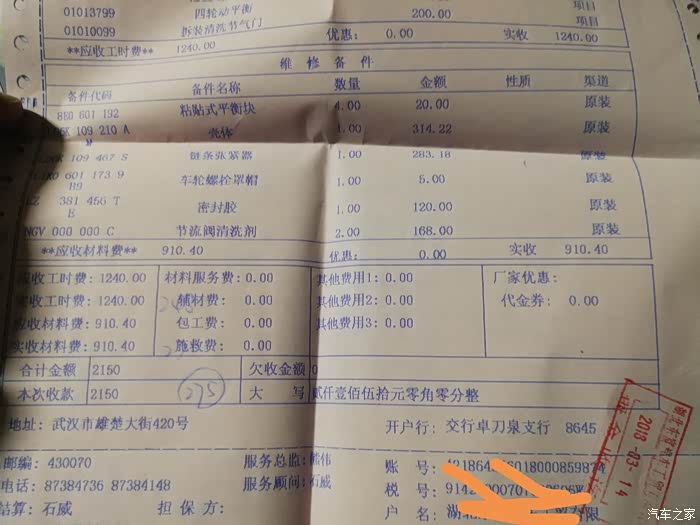 01013799 四轮动平衡 200.00 项目
01010099 拆装清洗节气门 项目
**应收工时费** 1240.00 优惠: 0.00 实收 1240.00
维 修 备 件
备件代码 备件名称 数量 金额 性质 渠道
8E0 601 192 粘贴式平衡块 4.00 20.00 原装
109 210 A 壳体 1.00 314.22 原装
109 467 S 链条张紧器 1.00 283.18 原装
601 173 9 车轮螺栓罩帽 1.00 5.00 原装
B9
381 456 T 密封胶 1.00 120.00 原装
E
000 000 C 节流阀清洗剂 2.00 168.00 原装
**应收材料费** 910.40 优惠: 0.00 实收 910.40
应收工时费: 1240.00 材料服务费: 0.00 其他费用1: 0.00 厂家优惠:
实收工时费: 1240.00 辅材费: 0.00 其他费用2: 0.00 代金券: 0.00
应收材料费: 910.40 包工费: 0.00 其他费用3: 0.00
实收材料费: 910.40 施救费: 0.00
合计金额 2150 欠收金额 0
本次收款 2150 275 大 写 贰仟壹佰伍拾元零角零分整
地址: 武汉市雄楚大街420号 开户行: 交行卓刀泉支行 8645
2018-03-14
邮编: 430070 服务总监: 熊伟 账 号:
电话: 87384736 87384148 服务顾问: 石威 税 号:
结算: 石威 担 保 方: 户 名:
汽车之家